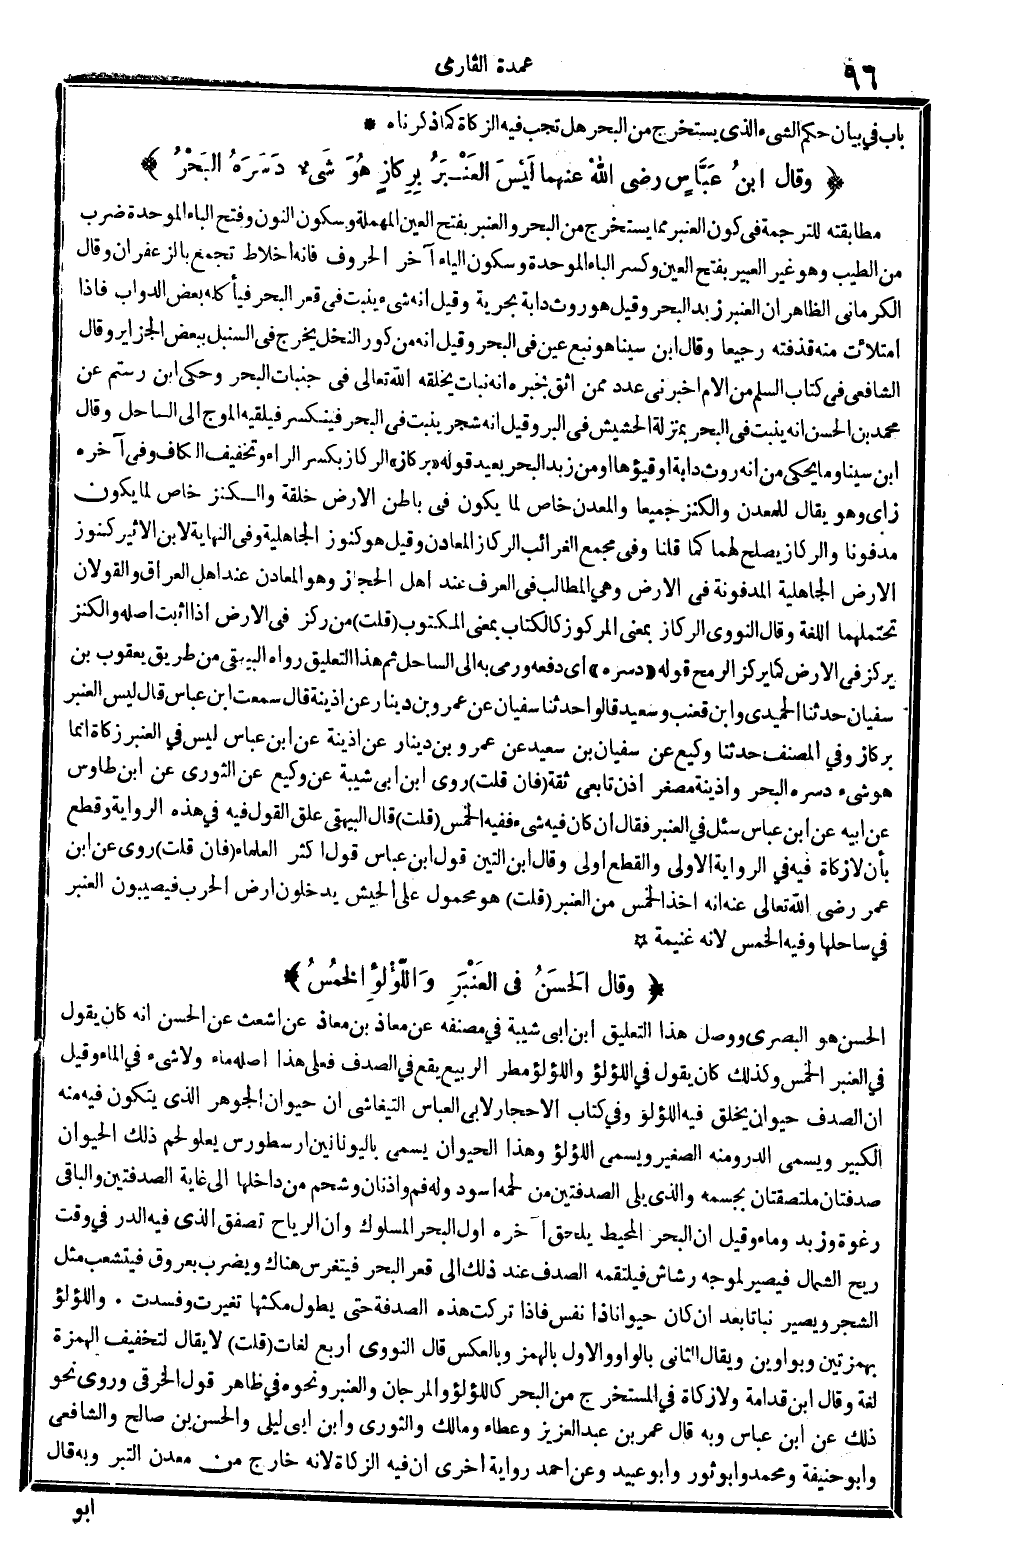 ٩٦
عمدة القارى
باب في بيان حكم الشىء الذى يستخرج من البحر هل تجب فيه الزكاة كما ذكرناه *
﴿ وقال ابنُ عَبَّاسٍ رضى اللهُ عنهما لَيْسَ العَنْبَرُ بِرِكازٍ هُوَ شَىْءٌ دَسَرَهُ البَحْرُ ﴾
مطابقته للترجمة فى كون العنبر مما يستخرج من البحر والعنبر بفتح العين المهملة وسكون النون وفتح الباء الموحدة ضرب
من الطيب وهو غير العبير بفتح العين وكسر الباء الموحدة وسكون الياء آخر الحروف فانه أخلاط تجمع بالزعفران وقال
الكرمانى الظاهر ان العنبر زبد البحر وقيل هو روث دابة بحرية وقيل انه شىء ينبت فى قعر البحر فيأكله بعض الدواب فاذا
امتلأت منه قذفته رجيعا وقال ابن سينا هو نبع عين فى البحر وقيل انه من كور النحل يخرج فى السنبل ببعض الجزاير وقال
الشافعى فى كتاب السلم من الام اخبرنى عدد ممن اثق بخبره انه نبات يخلقه الله تعالى فى جنبات البحر وحكى ابن رستم عن
محمد بن الحسن انه ينبت فى البحر بمنزلة الحشيش فى البر وقيل انه شجر ينبت فى البحر فينكسر فيلقيه الموج الى الساحل وقال
ابن سينا وما يحكى من انه روث دابة او قيؤها او من زبد البحر بعيد قوله «بركاز» الركاز بكسر الراء وتخفيف الكاف وفى آخره
زاى وهو يقال للمعدن والكنز جميعا والمعدن خاص لما يكون فى باطن الارض خلقة والكنز خاص لما يكون
مدفونا والركاز يصلح لهما كما قلنا وفى مجمع الغرائب الركاز المعادن وقيل هو كنوز الجاهلية وفى النهاية لابن الاثير كنوز
الارض الجاهلية المدفونة فى الارض وهي المطالب فى العرف عند اهل الحجاز وهو المعادن عند اهل العراق والقولان
تحتملهما اللغة وقال النووى الركاز بمعنى المركوز كالكتاب بمعنى المكتوب (قلت) من ركز فى الارض اذا اثبت اصله والكنز
يركز فى الارض كما يركز الرمح قوله «دسره» أى دفعه ورمى به الى الساحل ثم هذا التعليق رواه البيهقى من طريق يعقوب بن
سفيان حدثنا الحميدى وابن قعنب وسعيد قالوا حدثنا سفيان عن عمرو بن دينار عن اذينة قال سمعت ابن عباس قال ليس العنبر
بركاز وفي المصنف حدثنا وكيع عن سفيان بن سعيد عن عمرو بن دينار عن اذينة عن ابن عباس ليس في العنبر زكاة انما
هو شىء دسره البحر واذينة مصغر اذن تابعى ثقة (فان قلت) روى ابن ابى شيبة عن وكيع عن الثورى عن ابن طاوس
عن ابيه عن ابن عباس سئل في العنبر فقال ان كان فيه شىء ففيه الخمس (قلت) قال البيهقى علق القول فيه في هذه الرواية وقطع
بأن لا زكاة فيه في الرواية الاولى والقطع اولى وقال ابن التين قول ابن عباس قول اكثر العلماء (فان قلت) روى عن ابن
عمر رضى الله تعالى عنه انه اخذ الخمس من العنبر (قلت) هو محمول على الجيش يدخلون ارض الحرب فيصيبون العنبر
في ساحلها وفيه الخمس لانه غنيمة *
﴿ وقال الحَسَنُ فى العَنْبَرِ وَاللُّؤْلُؤِ الخُمُسُ ﴾
الحسن هو البصرى ووصل هذا التعليق ابن ابى شيبة في مصنفه عن معاذ بن معاذ عن اشعث عن الحسن انه كان يقول
في العنبر الخمس وكذلك كان يقول في اللؤلؤ واللؤلؤ مطر الربيع يقع في الصدف فعلى هذا اصله ماء ولا شىء في الماء وقيل
ان الصدف حيوان يخلق فيه اللؤلؤ وفي كتاب الاحجار لابى العباس التيفاشى ان حيوان الجوهر الذى يتكون فيه منه
الكبير ويسمى الدر ومنه الصغير ويسمى اللؤلؤ وهذا الحيوان يسمى باليونانين ارسطورس يعلو لحم ذلك الحيوان
صدفتان ملتصقتان بجسمه والذى يلى الصدفتين من لحمه اسود وله فم واذنان وشحم من داخلها الى غاية الصدفتين والباقى
رغوة وزبد وماء وقيل ان البحر المحيط يلحق آخره اول البحر المسلوك وان الرياح تصفق الذى فيه الدر في وقت
ريح الشمال فيصير لموجه رشاش فيلتقمه الصدف عند ذلك الى قعر البحر فيتغرس هناك ويضرب بعروق فيتشعب مثل
الشجر ويصير نباتا بعد ان كان حيوانا ذا نفس فاذا تركت هذه الصدفة حتى يطول مكثها تغيرت وفسدت . واللؤلؤ
بهمزتين وبواوين ويقال الثانى بالواو والاول بالهمز وبالعكس قال النووى اربع لغات (قلت) لا يقال لتخفيف الهمزة
لغة وقال ابن قدامة ولا زكاة في المستخرج من البحر كاللؤلؤ والمرجان والعنبر ونحوه في ظاهر قول الخرقى وروى نحو
ذلك عن ابن عباس وبه قال عمر بن عبد العزيز وعطاء ومالك والثورى وابن ابى ليلى والحسن بن صالح والشافعى
وابو حنيفة ومحمد وابو ثور وابو عبيد وعن احمد رواية اخرى ان فيه الزكاة لانه خارج من معدن التبر وبه قال
ابو